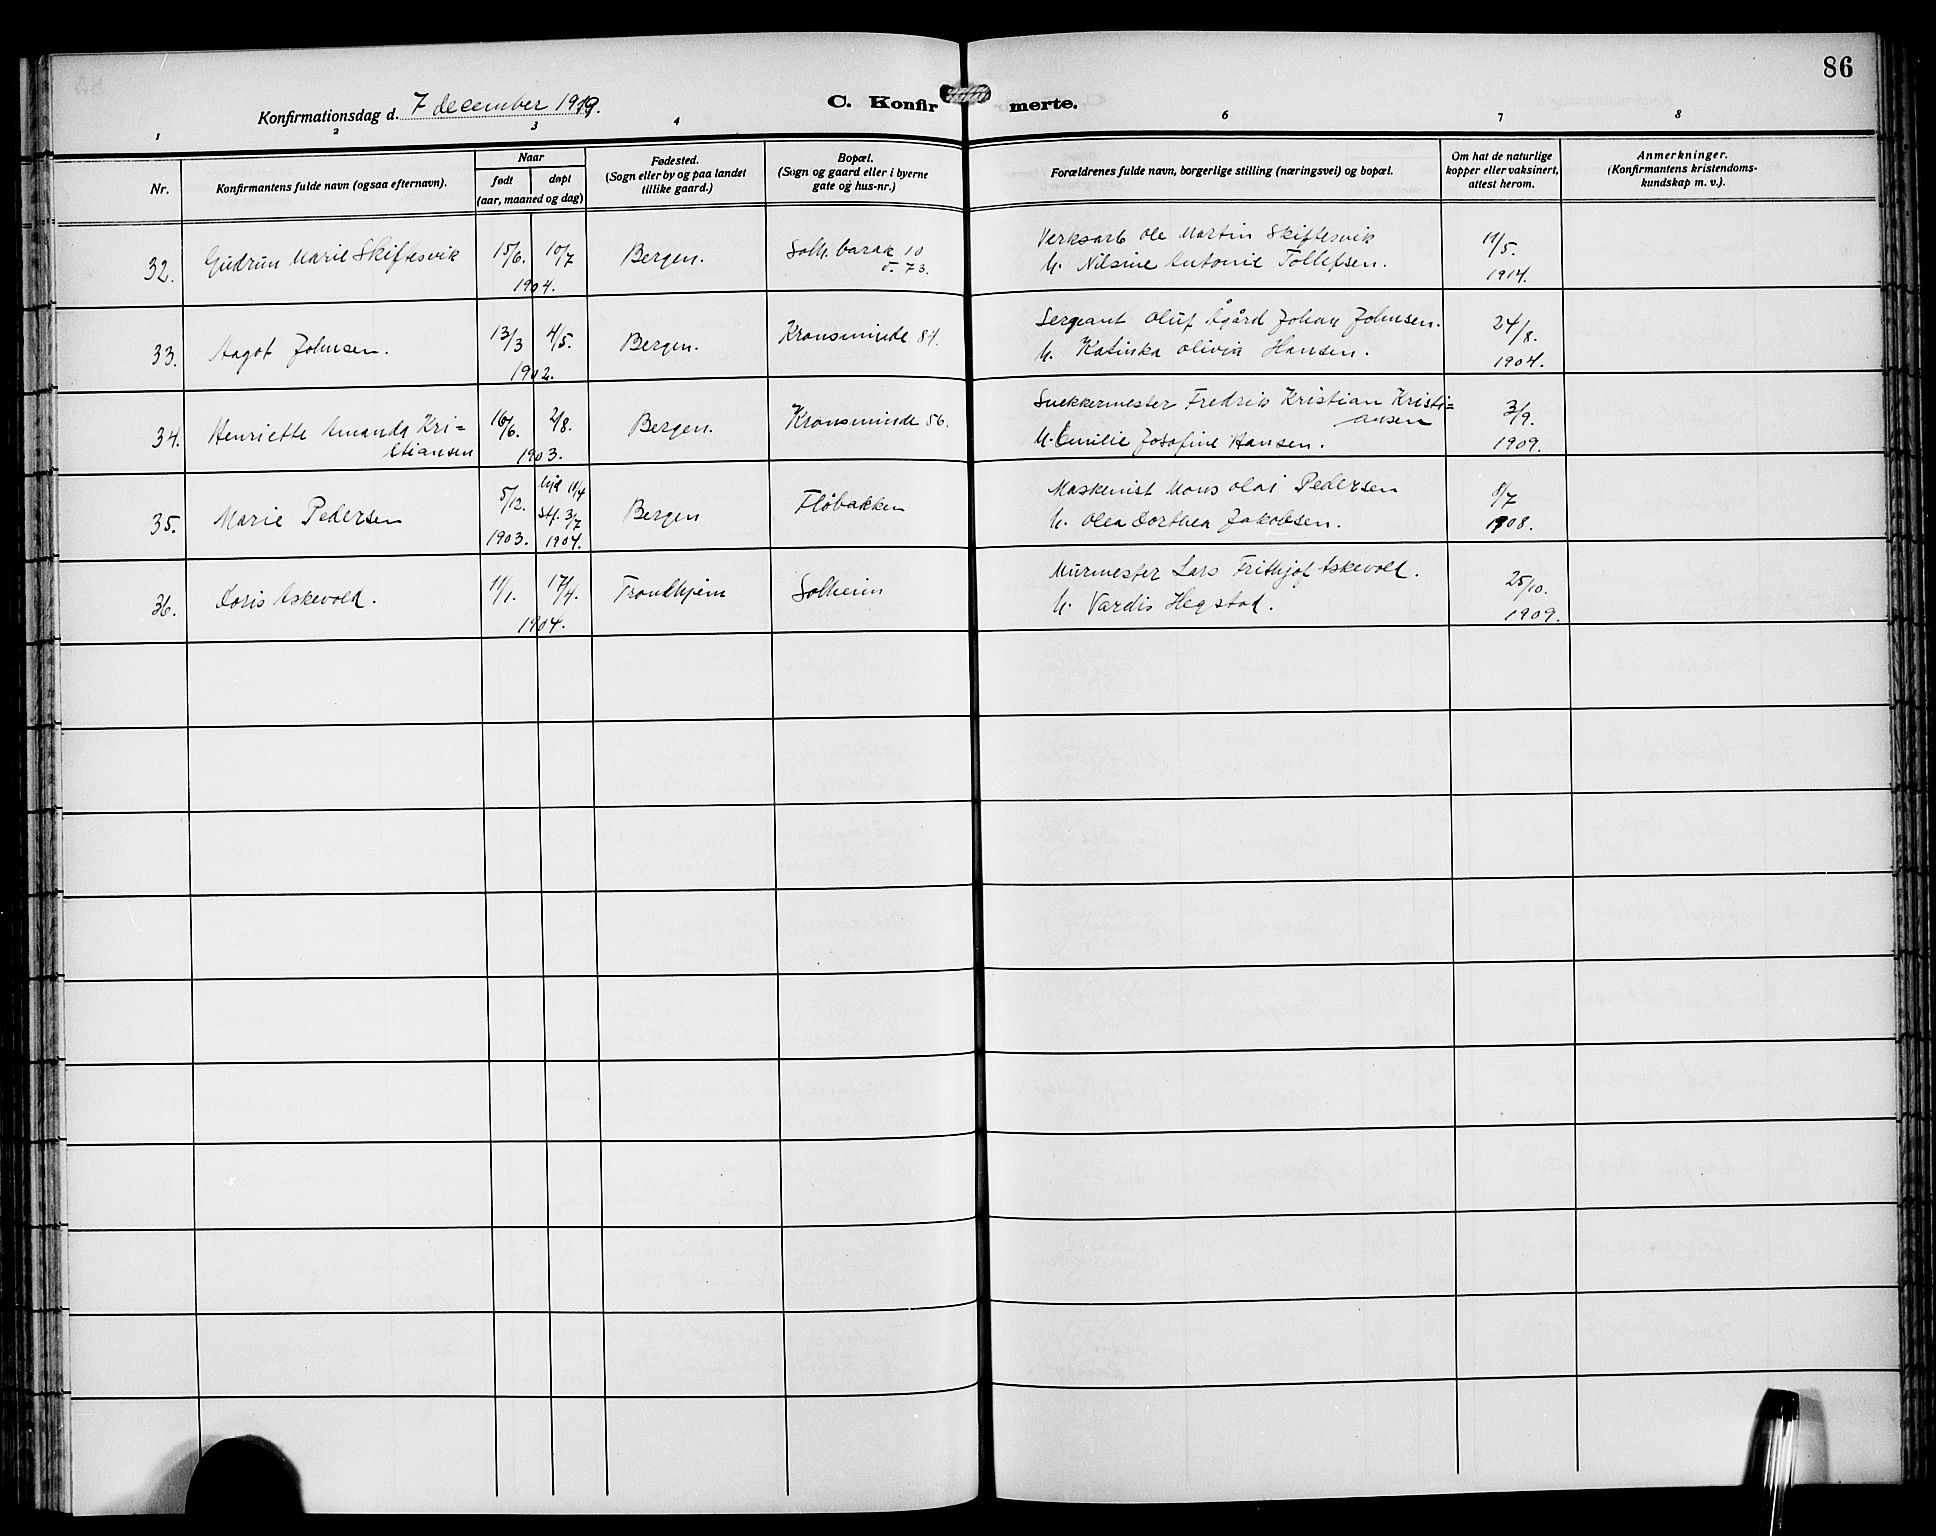 86
Konfirmationsdag d. 7 december 1919.
C. Konfirmerte.
1 2 3 4 6 7 8
Nr.
Konfirmantens fulde navn (ogsaa efternavn).
Naar
født
døpt
(aar, maaned og dag)
Fødested.
(Sogn eller by og paa landet
tillike gaard.)
Bopæl.
(Sogn og gaard eller i byerne
gate og hus-nr.)
Forældrenes fulde navn, borgerlige stilling (næringsvei) og bopæl.
Om hat de naturlige
kopper eller vaksinert,
attest herom.
Anmerkninger.
(Konfirmantens kristendoms-
kundskap m. v.).
32. Gudrun Marie Skiftesvik 15/6. 10/7 1904. Bergen. Solh. barak 10
v. 73.
Verksarb Ole Martin Skiftesvik
H. Nilsine Antonie Tollefsen.
11/5.
1914.
33. Aagot Johnsen. 13/3 4/5. 1902. Bergen. Kronsminde 84.
Sergeant Oluf Ågård Johan Johnsen.
H. Katinka Olivia Hansen.
24/8.
1904.
34. Henriette Amanda Kri=
stiansen 16/6. 2/8. 1903. Bergen. Kronsminde 56.
Snekkermester Fredrik Kristian Kristi=
ansen
H. Emilie Josofine Hansen.
3/9.
1909.
35. Marie Pedersen 5/12. 1903. hjd 11/4
stf. 3/7
1904. Bergen Fløbakken
Maskenist Mons Olai Pedersen
H. Olea Dorthea Jakobsen.
8/7
1908.
36. Doris Askevold. 11/1. 17/4. 1904. Trondhjem Solheim
Murmester Lars Frithjof Askevold.
H. Vardis Hegstad.
25/10.
1909.